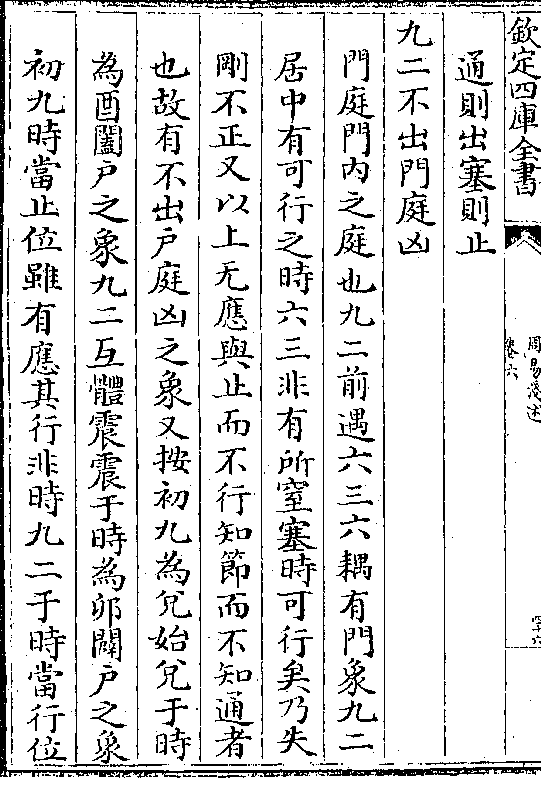 欽定四庫全書
周易淺述
卷六
通則出塞則止
九二不出門庭凶
門庭門内之庭也九二前遇六三六耦有門象九二
居中有可行之時六三非有所窒塞時可行矣乃失
剛不正又以上无應與止而不行知節而不知通者
也故有不出戶庭凶之象又按初九為兌始兌于時
為酉闔戶之象九二互體震震于時為夘闢戶之象
初九時當止位雖有應其行非時九二于時當行位